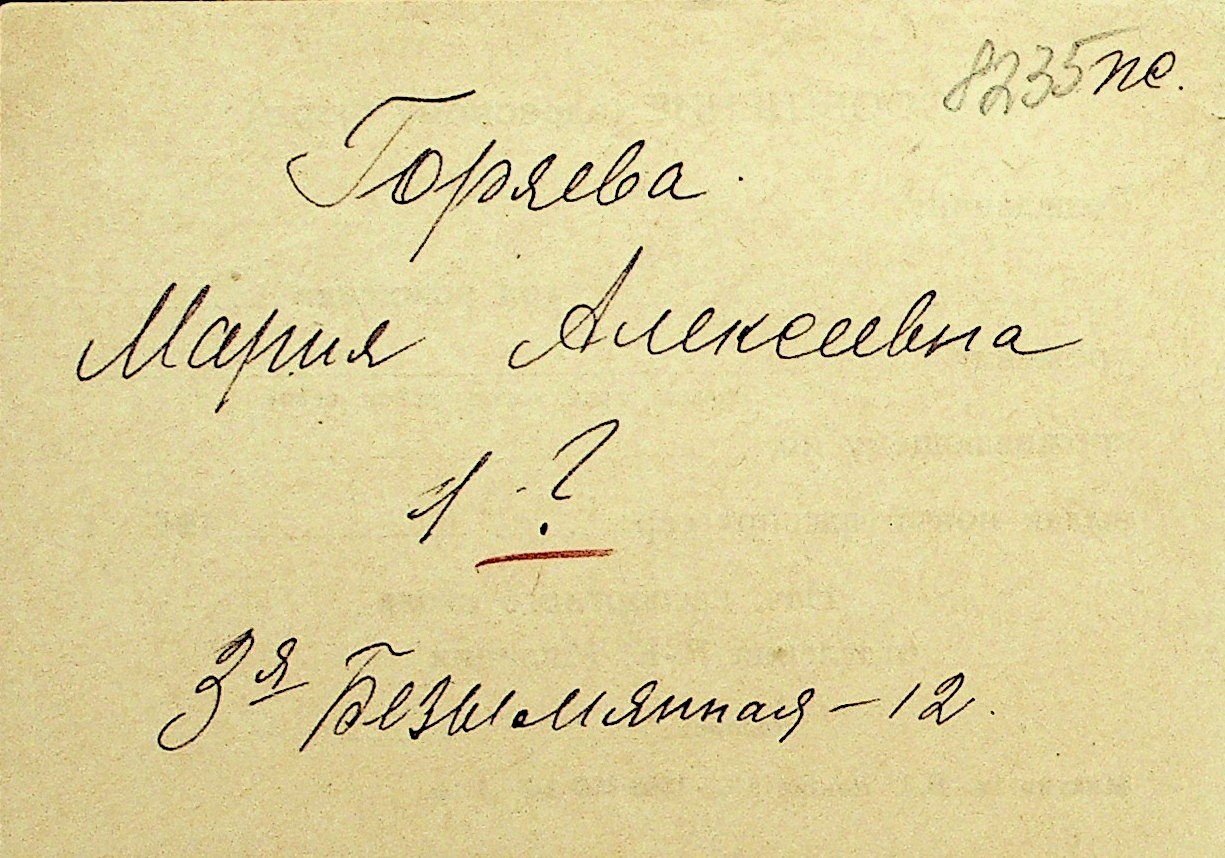 8235 пс.
Горяева
Мария Алексеевна
1 ?
3я Безымянная – 12.